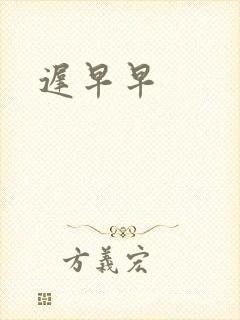 遲早早
方義宏